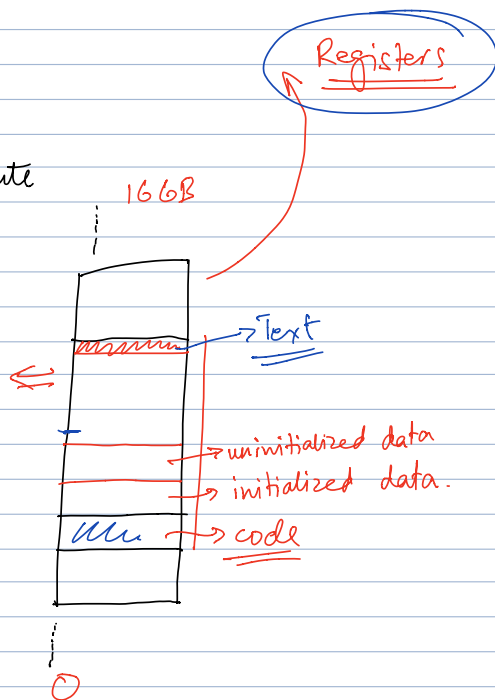 Registers
16GB
Text
uninitialized data
initialized data.
code
0